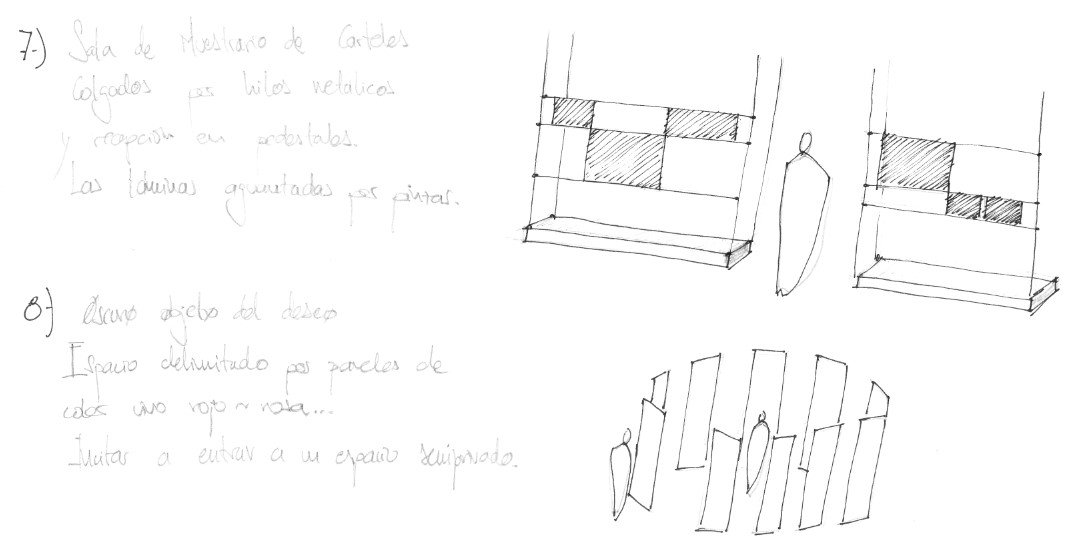 7.) Sala de Muestrario de Carteles
Colgados por hilos metálicos
y recepción en pedestales.
Las láminas por pintar.
8) oscuro objeto del deseo
Espacio delimitado por paneles de
color vivo rojo ~ rosa...
Invitar a entrar a un espacio semiprivado.